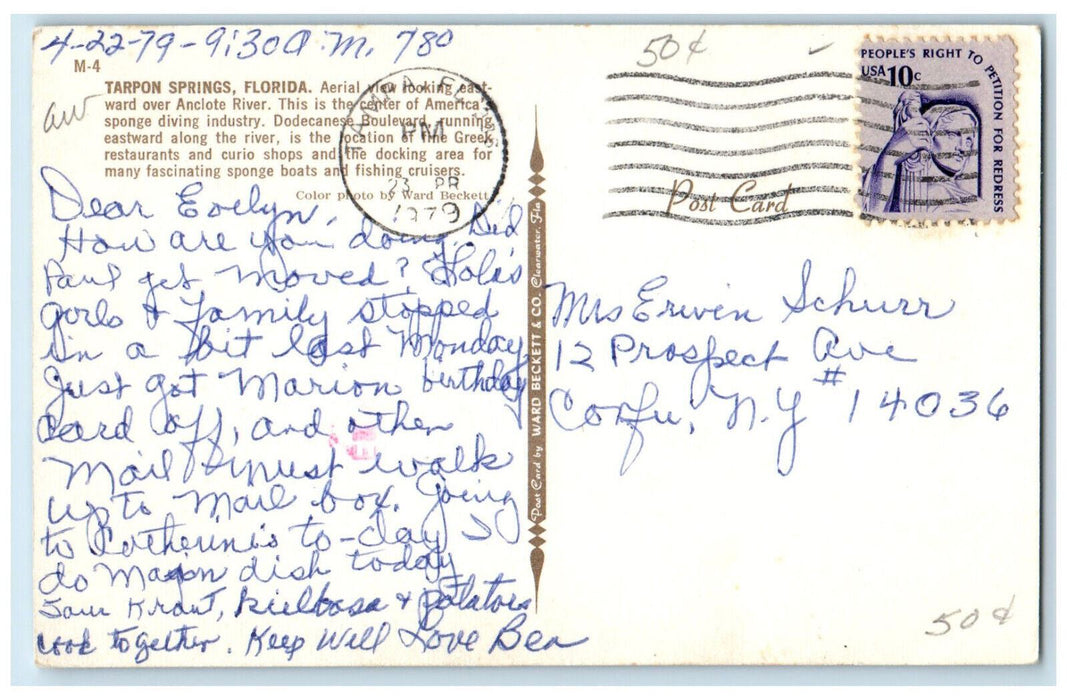 4-22-79-9:30 A.M. 780
M-4
TARPON SPRINGS, FLORIDA. Aerial view looking east-
ward over Anclote River. This is the center of America's
sponge diving industry. Dodecanese Boulevard, running
eastward along the river, is the location of fine Greek
restaurants and curio shops and the docking area for
many fascinating sponge boats and fishing cruisers.
Color photo by Ward Beckett
Dear Evelyn,
How are you doing. Did
Paul get moved?
girls & Family stopped
in a bit last Monday
Just got Marion birthday
card off, and other
Mail & must walk
up to Mail box. Going
to Catherine's to-day I
do Main dish today
Sour Kraut, Kielbasa & potatoes
cook together. Keep Well Love Bea
Post Card by WARD BECKETT & CO. Clearwater, Fla
TAMPA, FL
PM
23 APR
1979
50¢
PEOPLE'S RIGHT TO PETITION FOR REDRESS
USA 10c
Post Card
Mrs Erwin Schurr
12 Prospect Ave
Corfu, N.Y # 14036
50¢